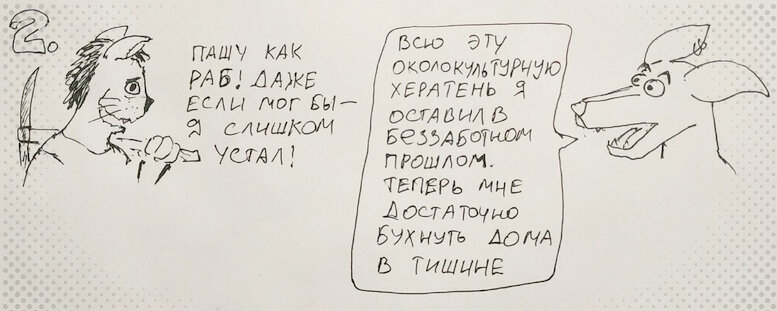 2.
ПАШУ КАК
РАБ! ДАЖЕ
ЕСЛИ МОГ БЫ —
Я СЛИШКОМ
УСТАЛ!
ВСЮ ЭТУ
ОКОЛОКУЛЬТУРНУЮ
ХЕРАТЕНЬ Я
ОСТАВИЛ В
БЕЗЗАБОТНОМ
ПРОШЛОМ.
ТЕПЕРЬ МНЕ
ДОСТАТОЧНО
БУХНУТЬ ДОМА
В ТИШИНЕ